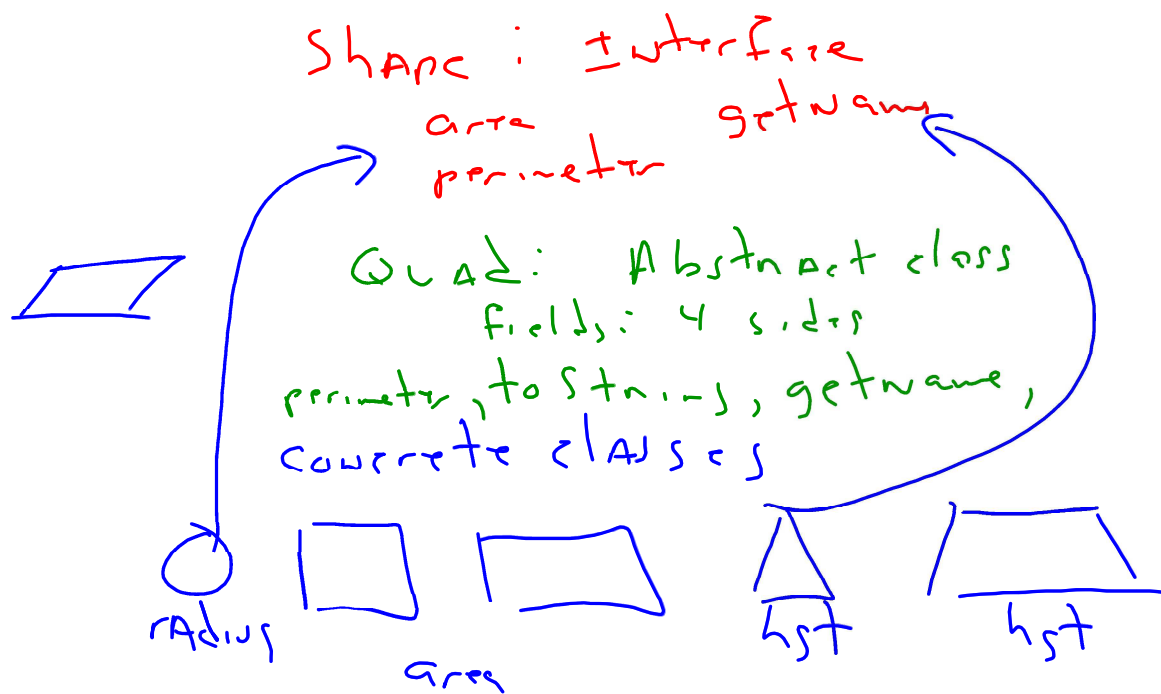 Shape : Interface
area getName
perimeter
Quad: Abstract class
fields: 4 sides
perimeter, toString, getname,
concrete classes
radius hgt hgt
area